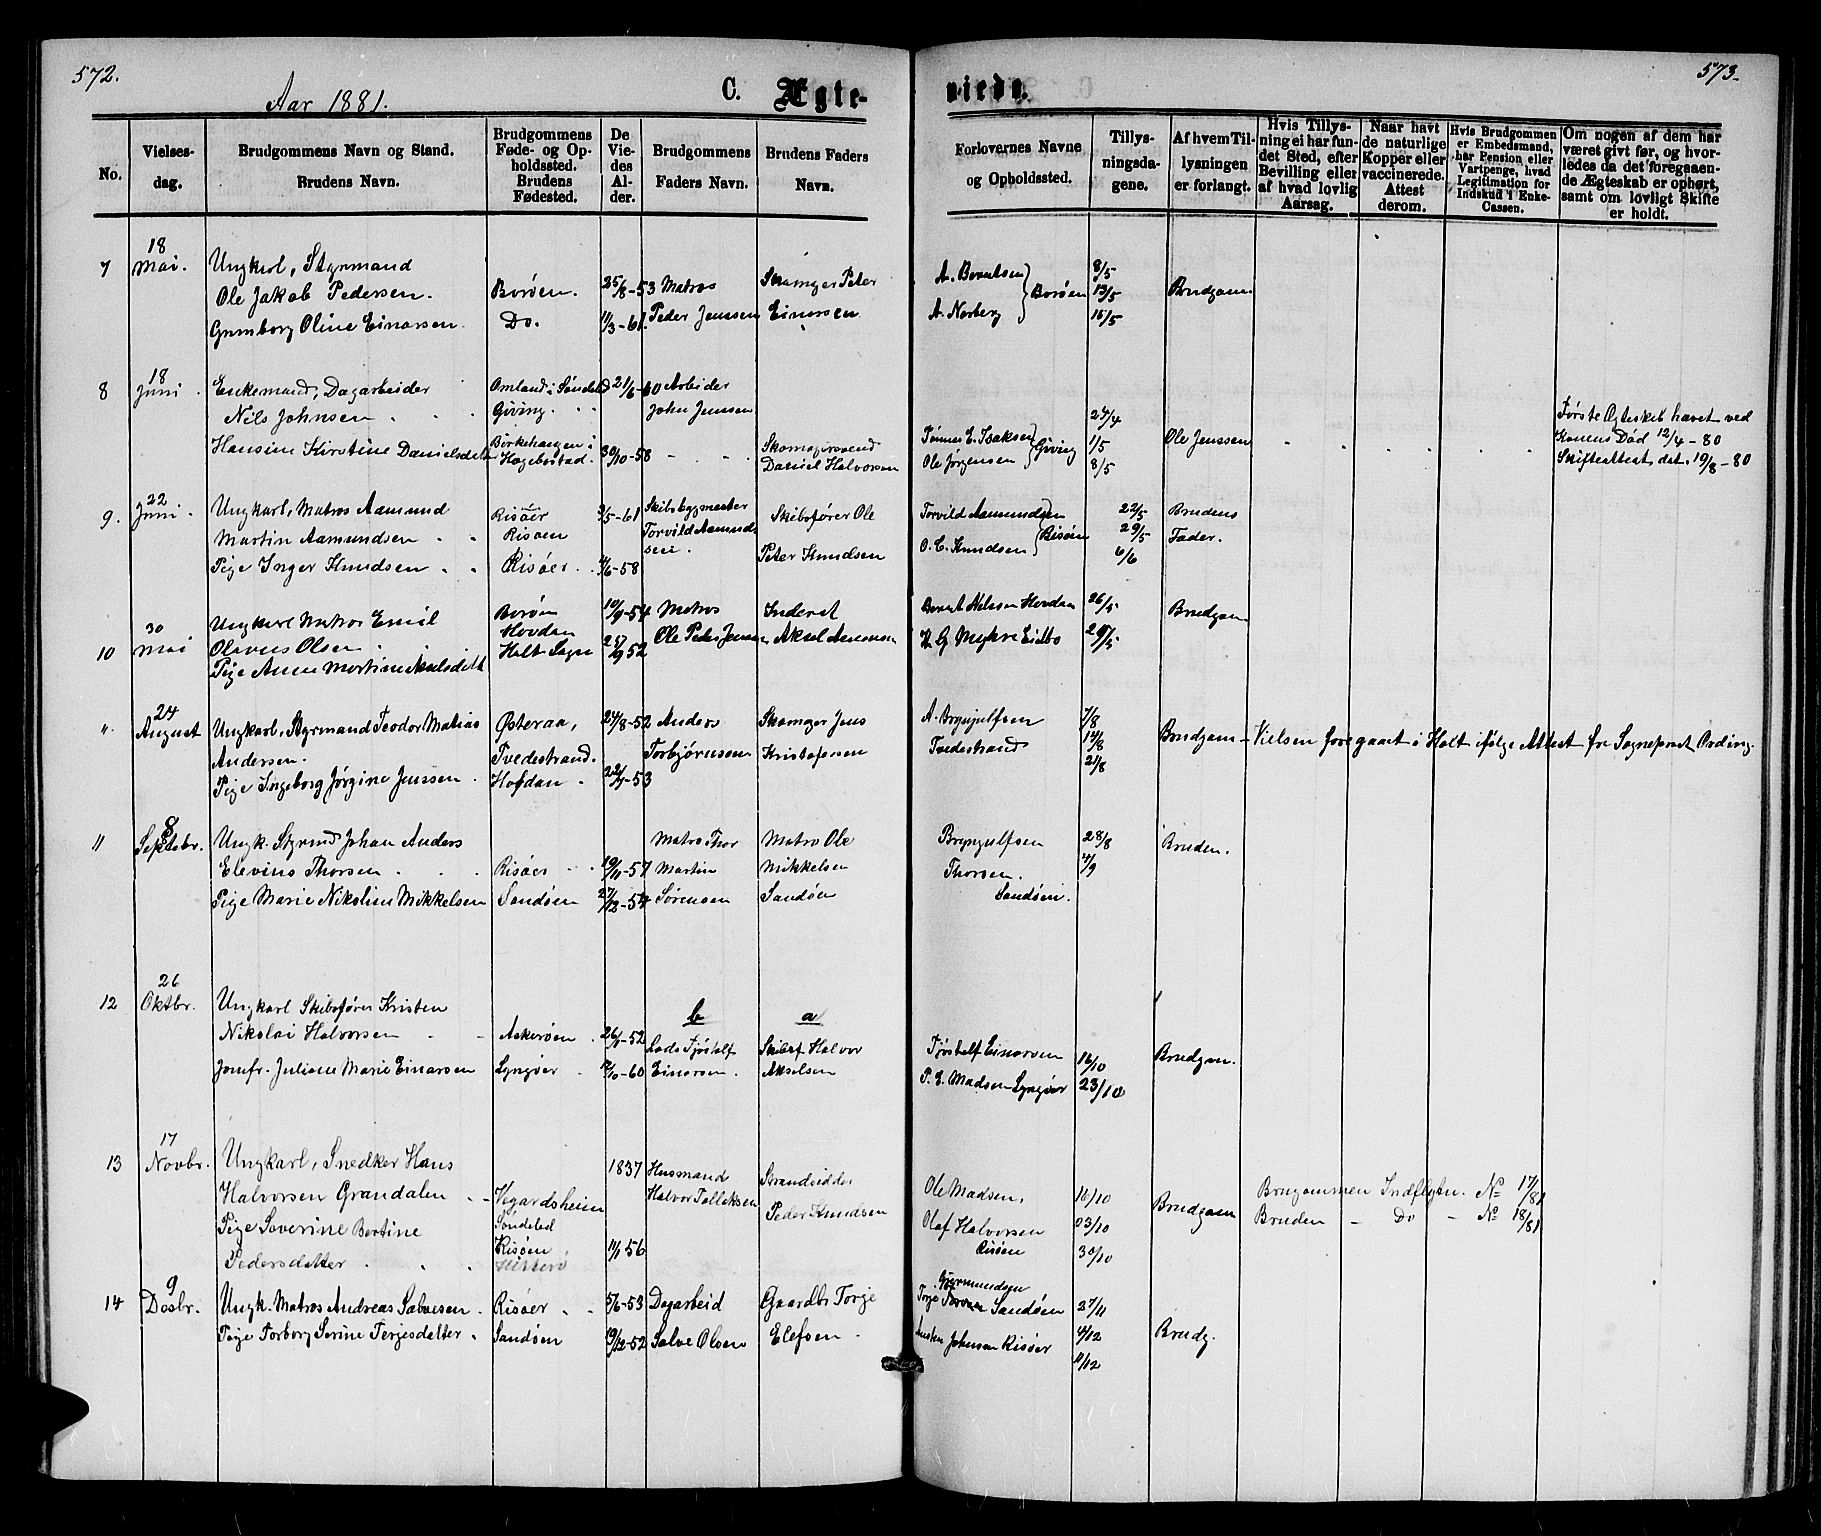 572.
Aar 1881.
C. Ægte-
No.
Vielses-
dag.
Brudgommens Navn og Stand.
Brudens Navn.
Brudgommens
Føde- og Op-
holdssted.
Brudens
Fødested.
De
Vie-
des
Al-
der.
Brudgommens
Faders Navn.
Brudens Faders
Navn.
7
18
Mai.
Ungkarl, Styrmand
Ole Jakob Pedersen.
Gunborg Oline Einarsen.
Borøen.
Do.
25/8-53
11/3-61.
Matros
Peder Jenssen
Skomager Peter
Einarsen
8
18
Juni
Enkemand, Dagarbeider
Nils Johnsen
Hansine Kirstine Danielsdatter
Omland i Søndeled
Giving.
Birkehaugen i
Hægebostad.
21/6-60
30/10-58
Arbeider
John Jenssen
Skomagersvend
Daniel Halvorsen
9.
22
Juni
Ungkarl, Matros Aamund
Martin Aamundsen
Pige Inger Knudsen
Risøer
Risøen
Risøer
3/5-61
4/6-58
Skibsbygmester
Torvild Aamund-
sen.
Skibsfører Ole
Peter Knudsen
10
30
Mai
Ungkarl Matros Emil
Olavus Olsen
Pige Anne Martine Akselsdatt
Borøen
Hovdan
Holt Sogn
10/9-54
27/9 52
Matros
Ole Peder Jensen
Inderst
Aksel Aanonsen
".
24
August
Ungkarl, Styrmand Teodor Matias
Andersen.
Pige Ingeborg Jørgine Jenssen
Østeraa,
Tvedestrand.
Hofdan
24/8-52
22/7-53
Anders
Torbjørnssen
Skomager Jens
Kristofersen
11
8
Septebr.
Ungk. Styrmd Johan Anders
Elevius Thorsen
Pige Marie Nikoline Mikkelsen
Risøer
Sandøen
19/11-57
27/12-54
Matros Thor
Martin
Sørensen
Matro Ole
Mikkelsen
Sandøen
12
26
Oktbr.
Ungkarl Skibsfører Kristen
Nikolai Halvorsen
Jomfr. Juliane Marie Einarsen
Askerøen
Lyngøer
26/1-52
12/10-60
b
Lods Fjøstolf
Einarsen.
a
Skibsf Halvor
Akselsen
13
17
Novbr.
Ungkarl, Snedker Hans
Halvorsen Grandalen
Pige Severine Bertine
Pedersdatter
Vegardsheien
Søndeled
Risøen
1837
11/1 56
Husmand
Halvor Tellefsen
Strandsidder
Peder Knudsen
14
9
Desbr.
Ungk. Matros Andreas Salvesen
Pige Torborg Serine Terjesdatter
Risøer
Sandøen
5/6-53
19/12-52
Dagarbeid
Salve Olsen
Gaardbr Torje
Elefsen
viede.
573.
Forlovernes Navne
og Opholdssted.
Tillys-
ningsda-
gene.
Af hvem Til-
lysningen
er forlangt.
Hvis Tillys-
ning ei har fun-
det Sted, efter
Bevilling eller
af hvad lovlig
Aarsag.
Naar havt
de naturlige
Kopper eller
vaccinerede.
Attest
derom.
Hvis Brudgommen
er Embedsmand,
har Pension eller
Vartpenge, hvad
Legitimation for
Indskud i Enke-
Cassen.
Om nogen af dem har
været givt før, og hvor-
ledes da det foregaaen-
de Ægteskab er ophørt,
samt om lovligt Skifte
er holdt.
A. Berntsen
A. Norberg
Borøen
8/5
13/5
15/5
Brudgom.
Tønnes E. Isaksen
Ole Jørgensen
Giving
24/4
1/5
8/5
Ole Jenssen
Første Ægteskab hævet ved
Konens Død 12/4-80
Skifteattest dat. 19/8-80
Torvild Aamundsen
O. C. Knudsen
Risøen
22/5
29/5
6/6
Brudens
Fader.
Bernt Nielssen Hovdan
26/5
29/5
Brudgom
A. Brynjulfsen
Tvedestrand
7/8
14/8
21/8
Brudgom
Vielsen foregaaet i Holt ifølge Attest fra Sogneprest Ording.
Brynjulfsen
Thorsen.
Sandøen.
28/8
4/9
Bruden.
Fjøstolf Einarsen
P. E. Madsen Lyngøer
16/10
23/10
Brudgom.
Ole Madsen,
Olaf Halvorsen
Risøen
10/10
03/10
30/10
Brudgom
Brugommen Indflytn. No 17/81
Bruden - Do - No 18/81
Gjermundsen
Torje Sandøen
Johnsen Risøer
27/11
4/12
11/12
Brudg.